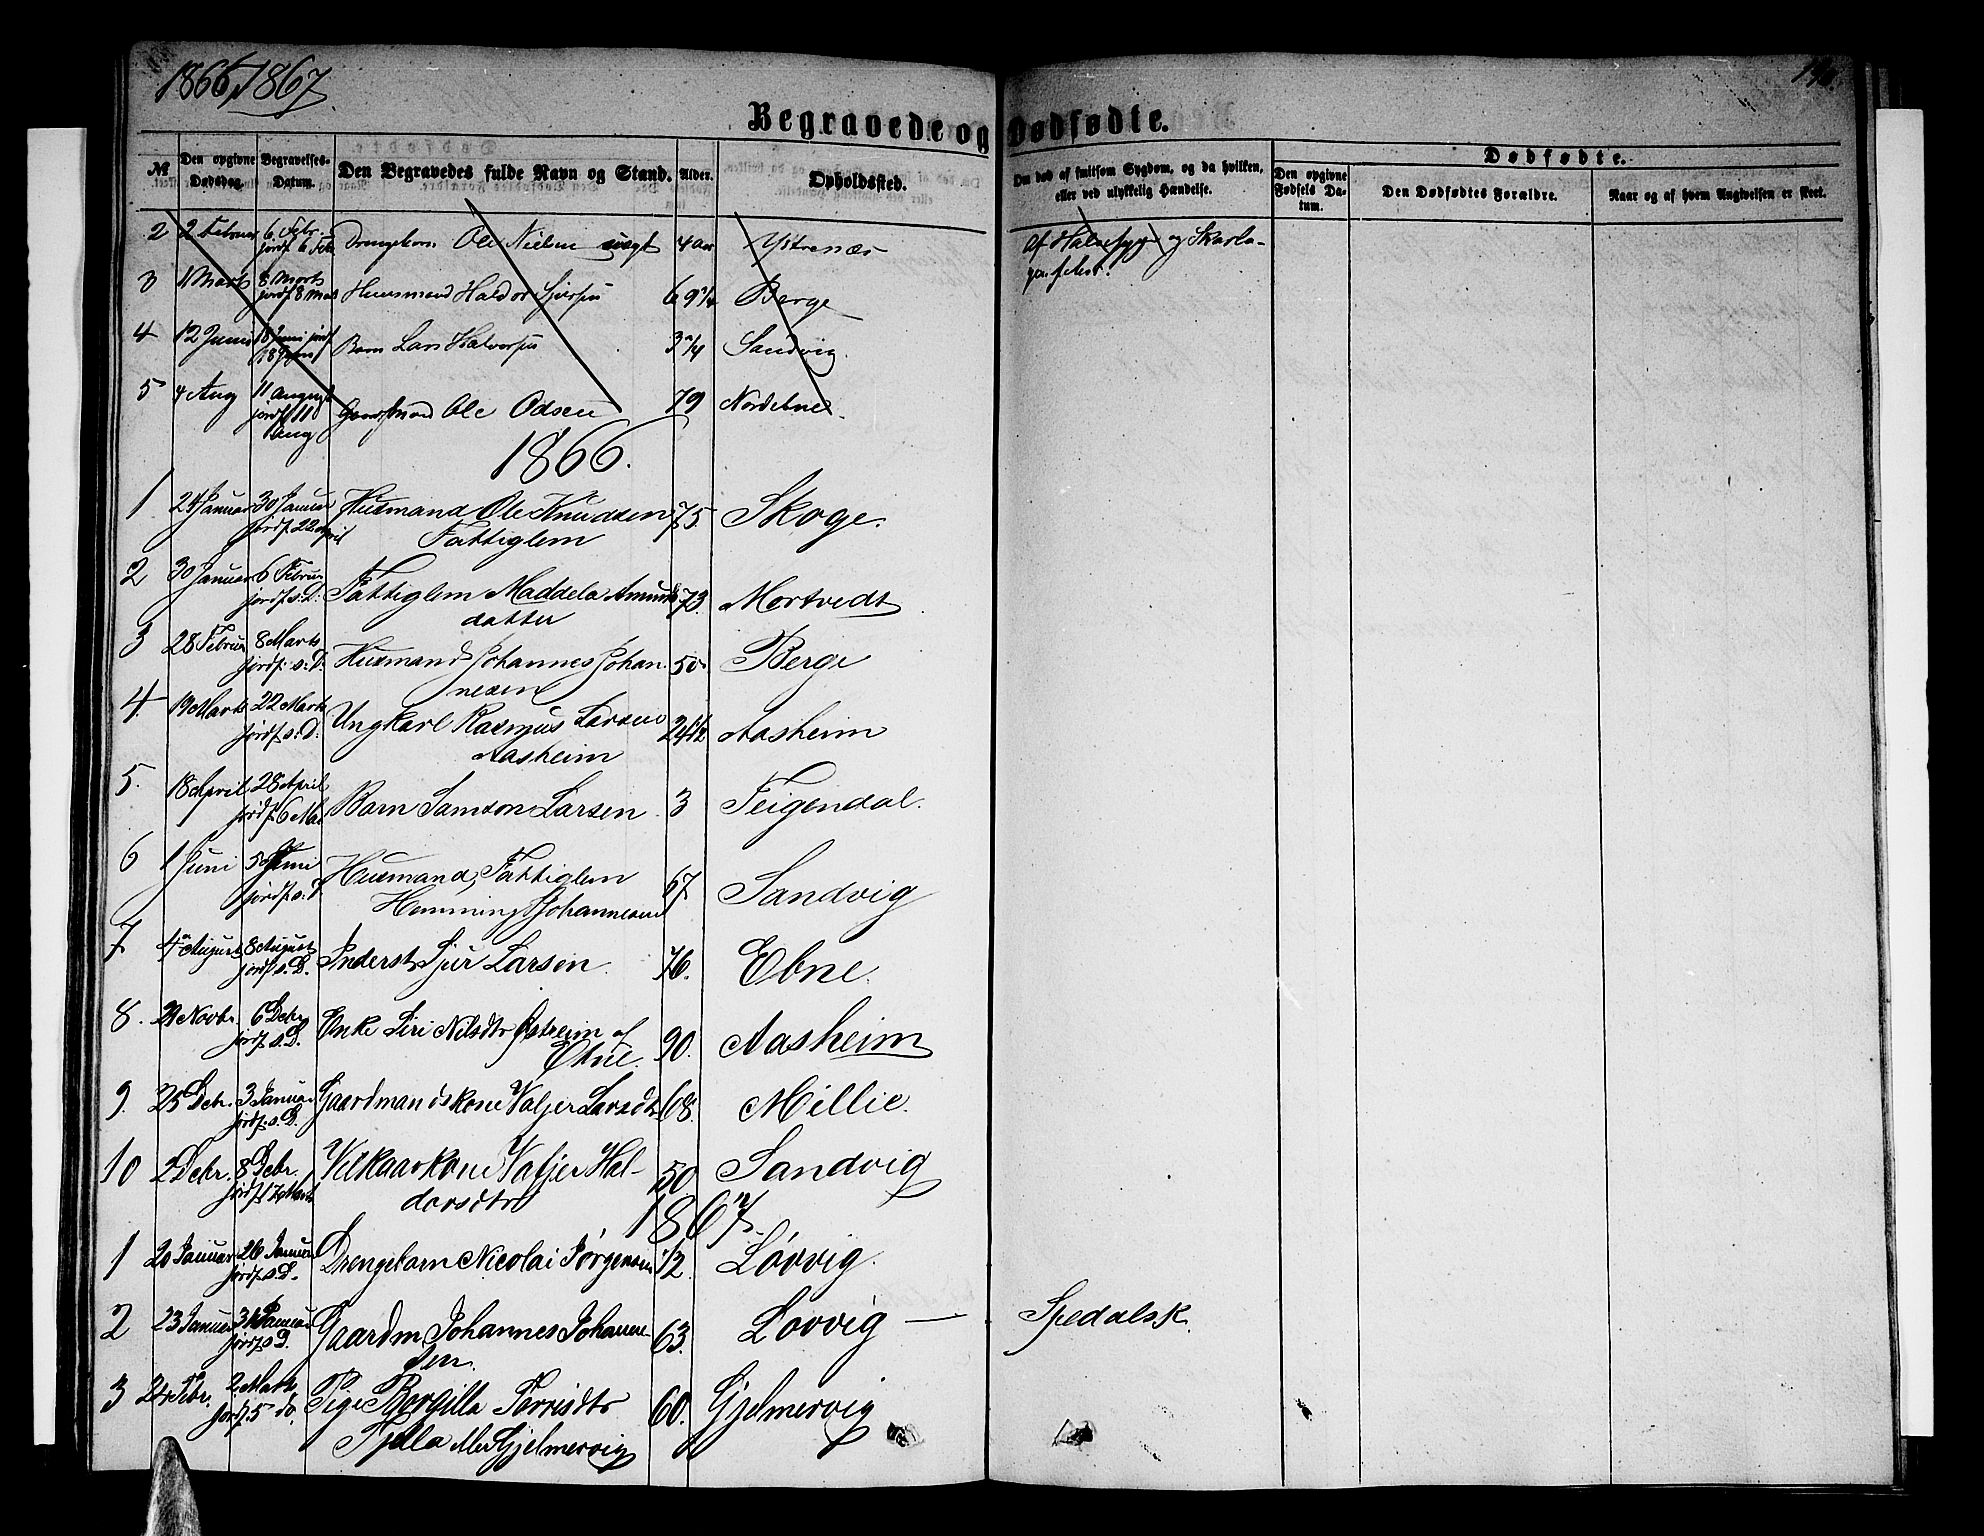 1866, 1867.
Begravede og Dødfødte.
№ Den opgivne Dødsdag. Begravelses-Datum. Den Begravedes fulde Navn og Stand. Alder. Opholdssted. Om død af smitsom Sygdom, og da hvilken, eller ved ulykkelig Hændelse. Dødfødte. Den opgivne Fødsels Datum. Den Dødfødtes Forældre. Naar og af hvem Angivelsen er skeet.
2 2 Februar 6 Febr. Drengebarn Ole Nielsen 4 Aar Ystrenæs Af Halssyge og Skarla-
jordf. 6 Feb
3 1 Marts 8 Marts Huusmand Haldor Sjursen 69 1/4 Berge
jordf. 8 Mar
4 12 Juni 18 Juni jordf. Barn Lars Halvorsen 3 3/4 Sandvig.
18 Juni
5 4 Aug 11 August Gaardmand Ole Odsen 79 Nordebne.
jordf. 11
Aug
1866.
1 24 Januar 30 Januar Husmand Ole Knudsen 75. Skoge.
jordf. 22 April Fattiglem
2 30 Januar 6 Februar Fattiglem Maddela Amunds 73. Mortvedt
jordf. s. D. datter
3 28 Februar 8 Marts Husmand Johannes Johan- 50. Berge
jordf. s. D. nesen
4. 19 Marts 22 Marts Ungkarl Rasmus Larsen 24 1/2 Aasheim
jordf. s. D. Aasheim
5. 18 April 28 April Barn Samson Larsen 3 Feigendal.
jordf. 6 Mai
6 1 Juni 5 Juni Husmand, Fattiglem 67 Sandvig
jordf. s. D Hemming Johannesen
7 4 August 8 August Inderst Sjur Larsen 76. Ebne.
jordf. s. D.
8. 29 Novbr. 6 Debr. Enke Siri Nilsdtr Østreim af 90. Aasheim
jordf. s. D. Ebne.
9. 25 Debr. 3 Januar Gaardmandskone Valjer Larsdtr 68. Millie.
jordf. s. D.
10 2 Debr. 8 Debr. Vilkaarkone Valjer Hal- 50 Sandvig
jordf. 17 Marts dorsdtr
1867.
1 20 Januar 26 Januar Drengebarn Nicolai Jørgensen 1/2 Lövvig.
jordf. s. D.
2 23 Januar 31 Januar Gaardm Johannes Johanne- 63. Lövvig — Spedalsk.
jordf. s D. sen.
3 24 Febr. 2 Marts Pige Bergilla Torrisdtr 60. Gjelmervig
jordf. 5 do. Gjelmervig